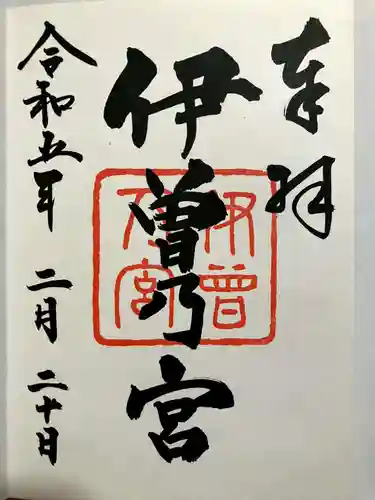 奉拝
伊曽乃宮
伊曽乃宮
令和五年 二月 二十日